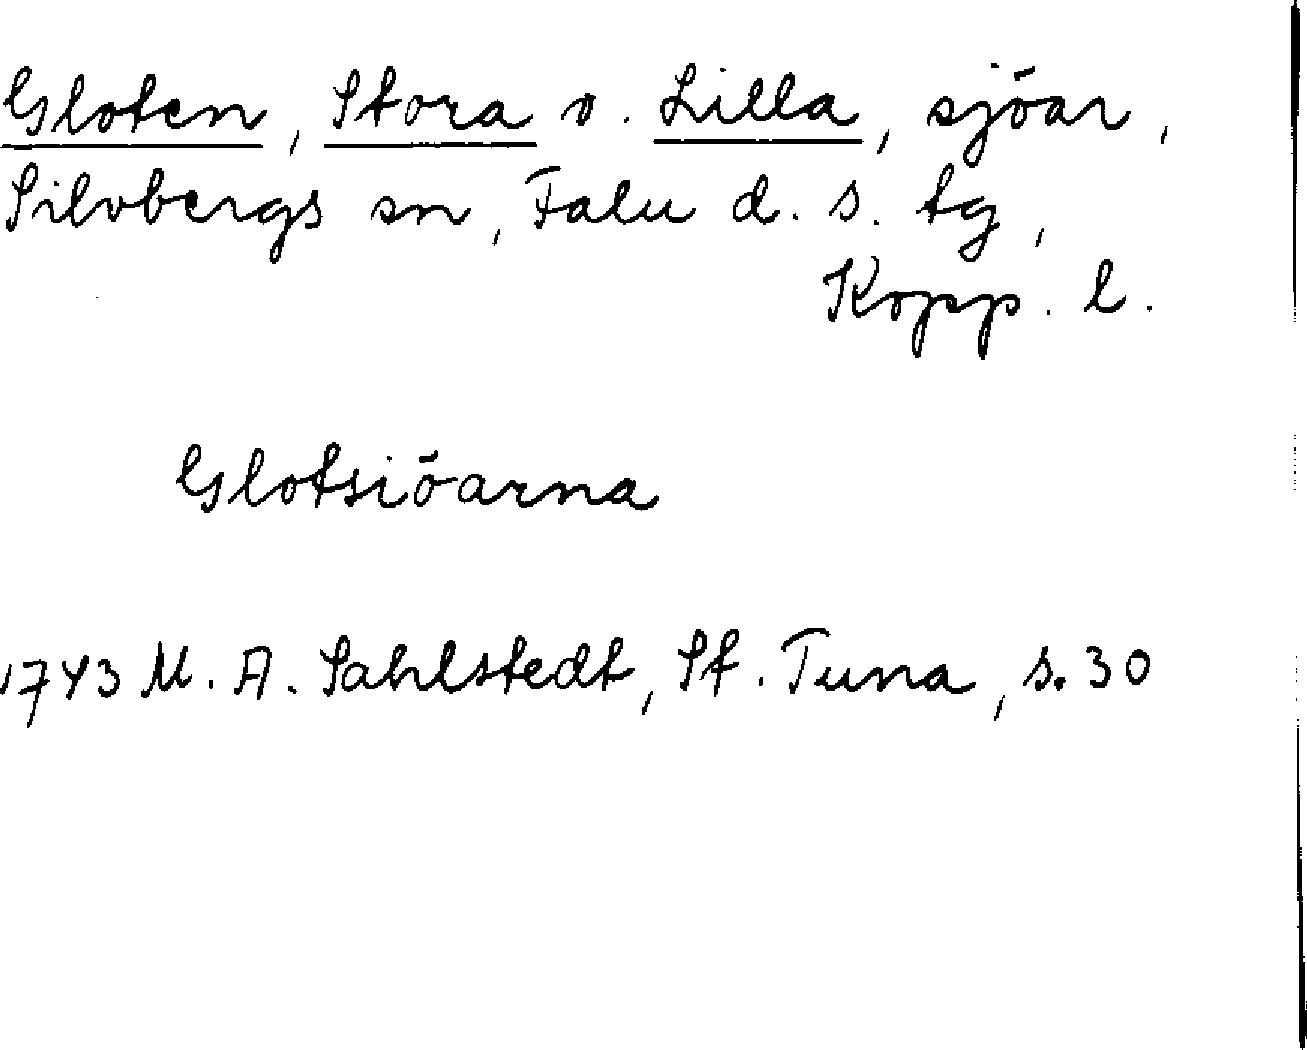 Gloten, Stora o. Lilla, sjöar,
Silvbergs sn, Falu d. s. tg,
Kopp. l.
Glotsiöarna
1743 M. A. Sahlstedt, St. Tuna, s. 30